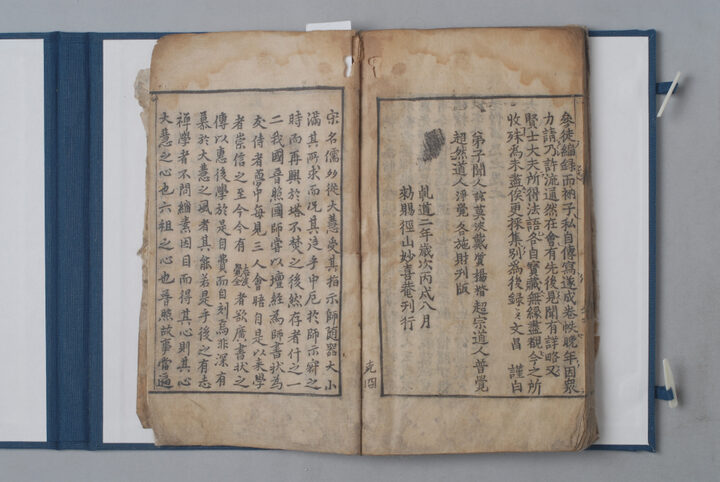 參徒編錄而衲子私自傳寫遂成卷帙晚年因衆
力請乃許流通然在會有先後見聞有詳略又
賢士大夫所得法語各自寶藏無緣盡觀今之所
收殊爲未盡俟更採集別爲後錄ゝ文昌 謹白
弟子聞人諒莫浚戴質揚楷超宗道人普覺
超然道人淨覺各施財刊版
乹道二年歲次丙戌八月
勑賜徑山妙喜菴刊行
宋名儒多從大慧受其指示師随器大小
滿其所求而況其達乎中厄於師示寂之
時而再興於塔不焚之後然存者什之一
二我國普照國師嘗以壇經爲師書狀爲
友侍者 中每見三人會晤自是以來學
者崇信之至今今有 覺全 者欲廣書狀之
傳以惠後學於是自費而自刻焉非深有
慕於大慧之風者其能若是乎後之有志
禪學者不問緇素因目而得其心則其心
大慧之心也六祖之心也普照故事當遍